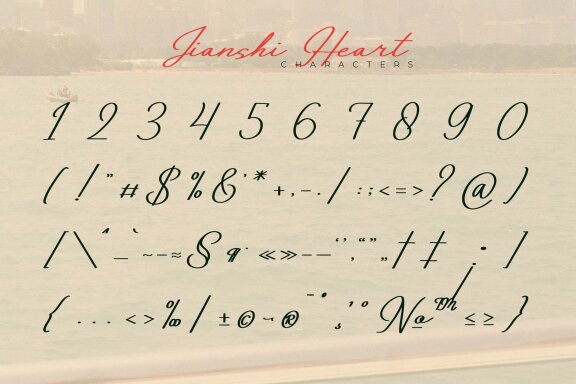 Jianshi Heart
CHARACTERS
1 2 3 4 5 6 7 8 9 0
( ! " # $ % & ' * + , - . / : ; < = > ? @ )
[ \ ^ _ ` ~ – ≈ § ¶ · « » – — ‘ ’ ‚ “ ” „ † ‡ ¡ ]
{ . . . < > ‰ / ± © ¬ ® ¯ ° ¸ ¹ º № ™ ≤ ≥ }